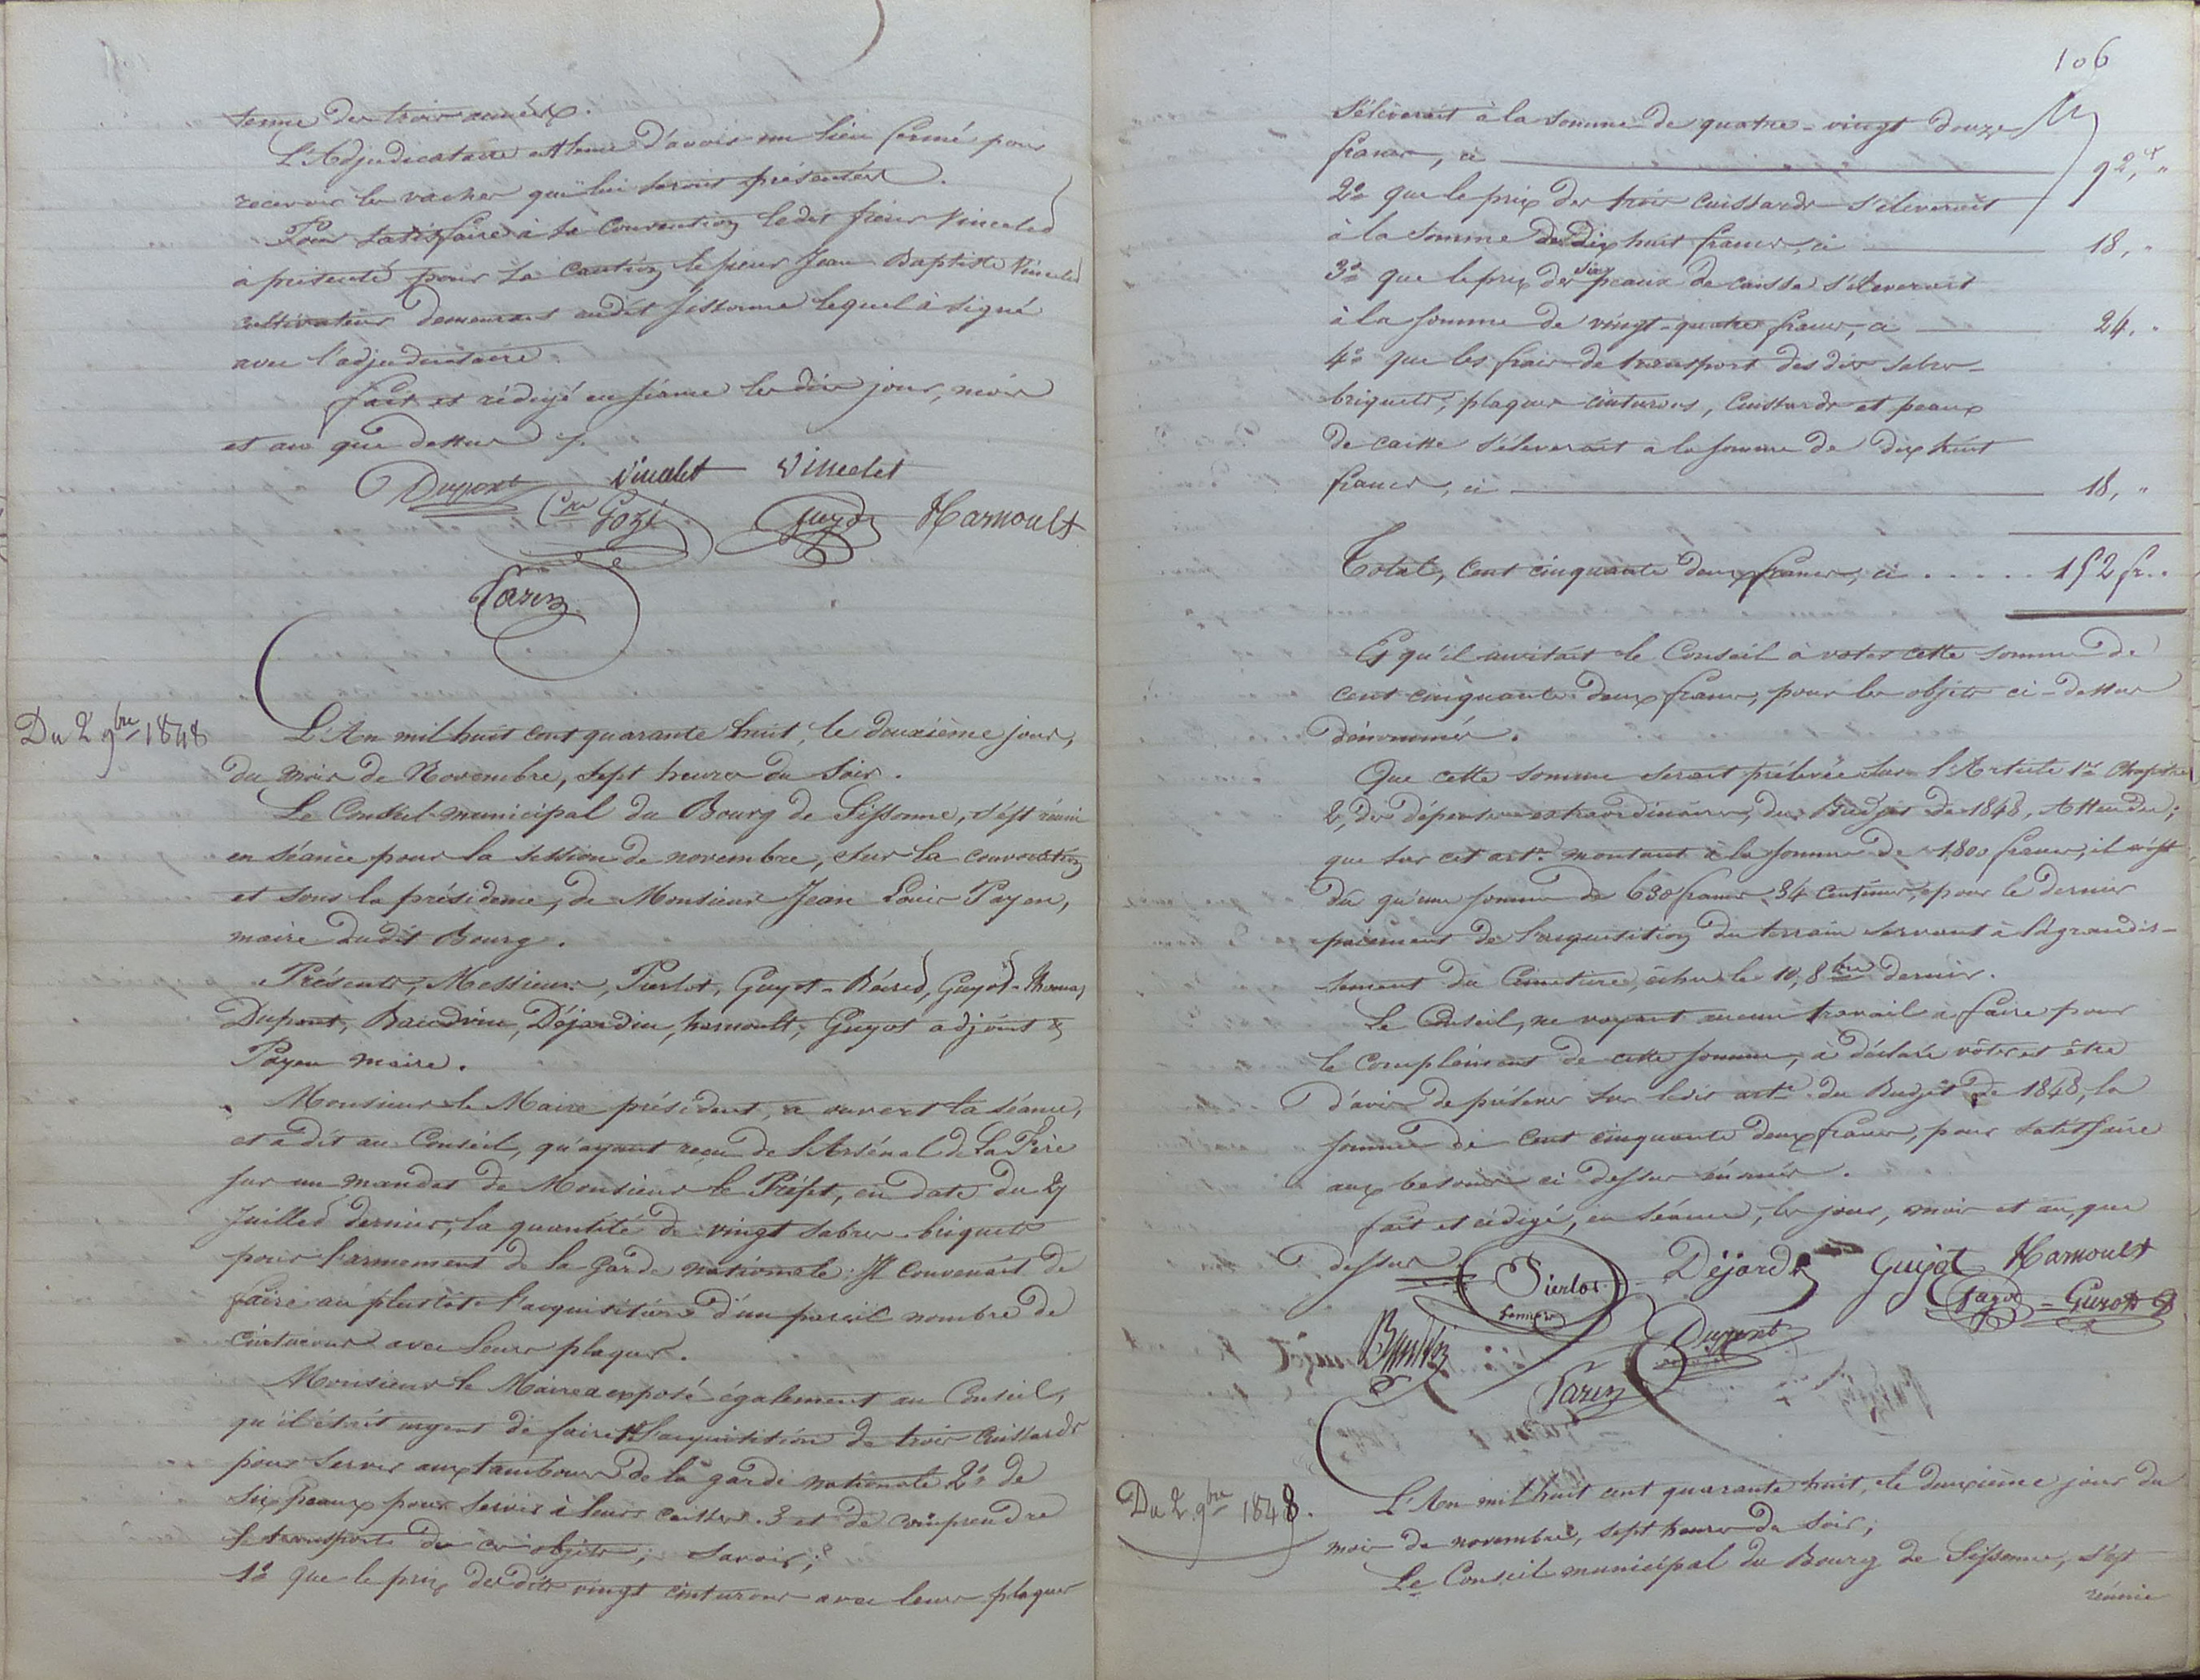 terme des trois années.
L'Adjudicataire est tenu d'avoir un lieu fermé pour
recevoir les vaches qui lui seront présentées.
Pour satisfaire à sa convention ledit sieur Vincelet
à présenté pour sa caution le sieur Jean Baptiste Vincelet
cultivateur demeurant audit Sissonne lequel à signé
avec l'adjudicataire.
Fait et rédigé en séance les dits jour, mois
et an que dessus /.
Dupont Vincelet Vincelet
Gozé Guyot Harnoult
Du 2 9bre 1848
L'An mil huit cent quarante huit, le deuxième jour,
du mois de Novembre, sept heures du soir.
Le Conseil municipal du Bourg de Sissonne, s'est réuni
en séance pour la session de novembre, sur la convocation
et sous la présidence, de Monsieur Jean Louis Payen,
maire dudit Bourg.
Présents, Messieurs, Pierlot, Guyot-, Guyot-Thomas,
Dupont, Baudoin, Déjardin, harnoult, Guyot adjoint &
Payen maire.
Monsieur le Maire président, a ouvert la séance,
et a dit au Conseil, qu'ayant reçu de l'Arsénal de La Fère
sur un mandat de Monsieur le Préfet, en date du 27
Juillet dernier, la quantité de vingt sabres-briquets
pour l'armement de la Garde nationale. Il convenait de
faire au plustôt l'acquisition d'un pareil nombre de
ceinturons avec leurs plaques.
Monsieur le Maire a exposé également au Conseil,
qu'il était urgent de faire l'acquisition de trois cuissards
pour servir aux tambours de la garde nationale 2° de
six peaux pour servir à leurs caisses. 3 et de comprendre
le transport de ces objets; savoir;
1° que le prix desdits vingt cinturons avec leurs plaques
106
S'éleverait à la somme de quatre-vingt douze
francs, ci 92,f "
2° que le prix des trois cuissards s'éleverait
à la somme de dix huit francs, ci 18, "
3° que le prix des six peaux de caisse s'éleverait
à la somme de vingt-quatre francs, ci 24, "
4° que les frais de transport desdits sabres-
briquets, plaques cinturons, cuissards et peaux
de caisse s'éleverait a la somme de dix huit
francs, ci 18, "
Total, cent cinquante deux francs, ci . . . . . 152 fr..
Et qu'il invitait le Conseil à voter cette somme de
cent cinquante deux francs, pour les objets ci-dessus
dénommés.
Que cette somme serait prélevée sur l'Article 1er Chapitre
2, des dépenses extraordinaires, du Budjet de 1848, Attendu;
que sur cet arte. montant à la somme de 1800 francs, il n'est
dû qu'une somme de 630 francs 34 centimes, pour le dernier
paiement de l'acquisition du terrain servant à l'agrandis-
sement du Cimetière, échu le 10, 8bre dernier.
Le Conseil, ne voyant aucun travail à faire pour
le complément de cette somme, à déclaré voter et être
d'avis de prélever sur ledit arte. du Budjet de 1848, la
somme de cent cinquante deux francs, pour satisfaire
aux besoins ci dessus énoncés.
Fait et rédigé, en séance, les jour, mois et an, que
dessus.
Pierlot Déjardin Guyot Harnoult
Guyot
Baudoin Dupont
Du 2 9bre 1848.
L'An mil huit cent quarante huit, le deuxième jour du
mois de novembre, sept heures du soir;
Le Conseil municipal du Bourg de Sissonne, s'est
réunie